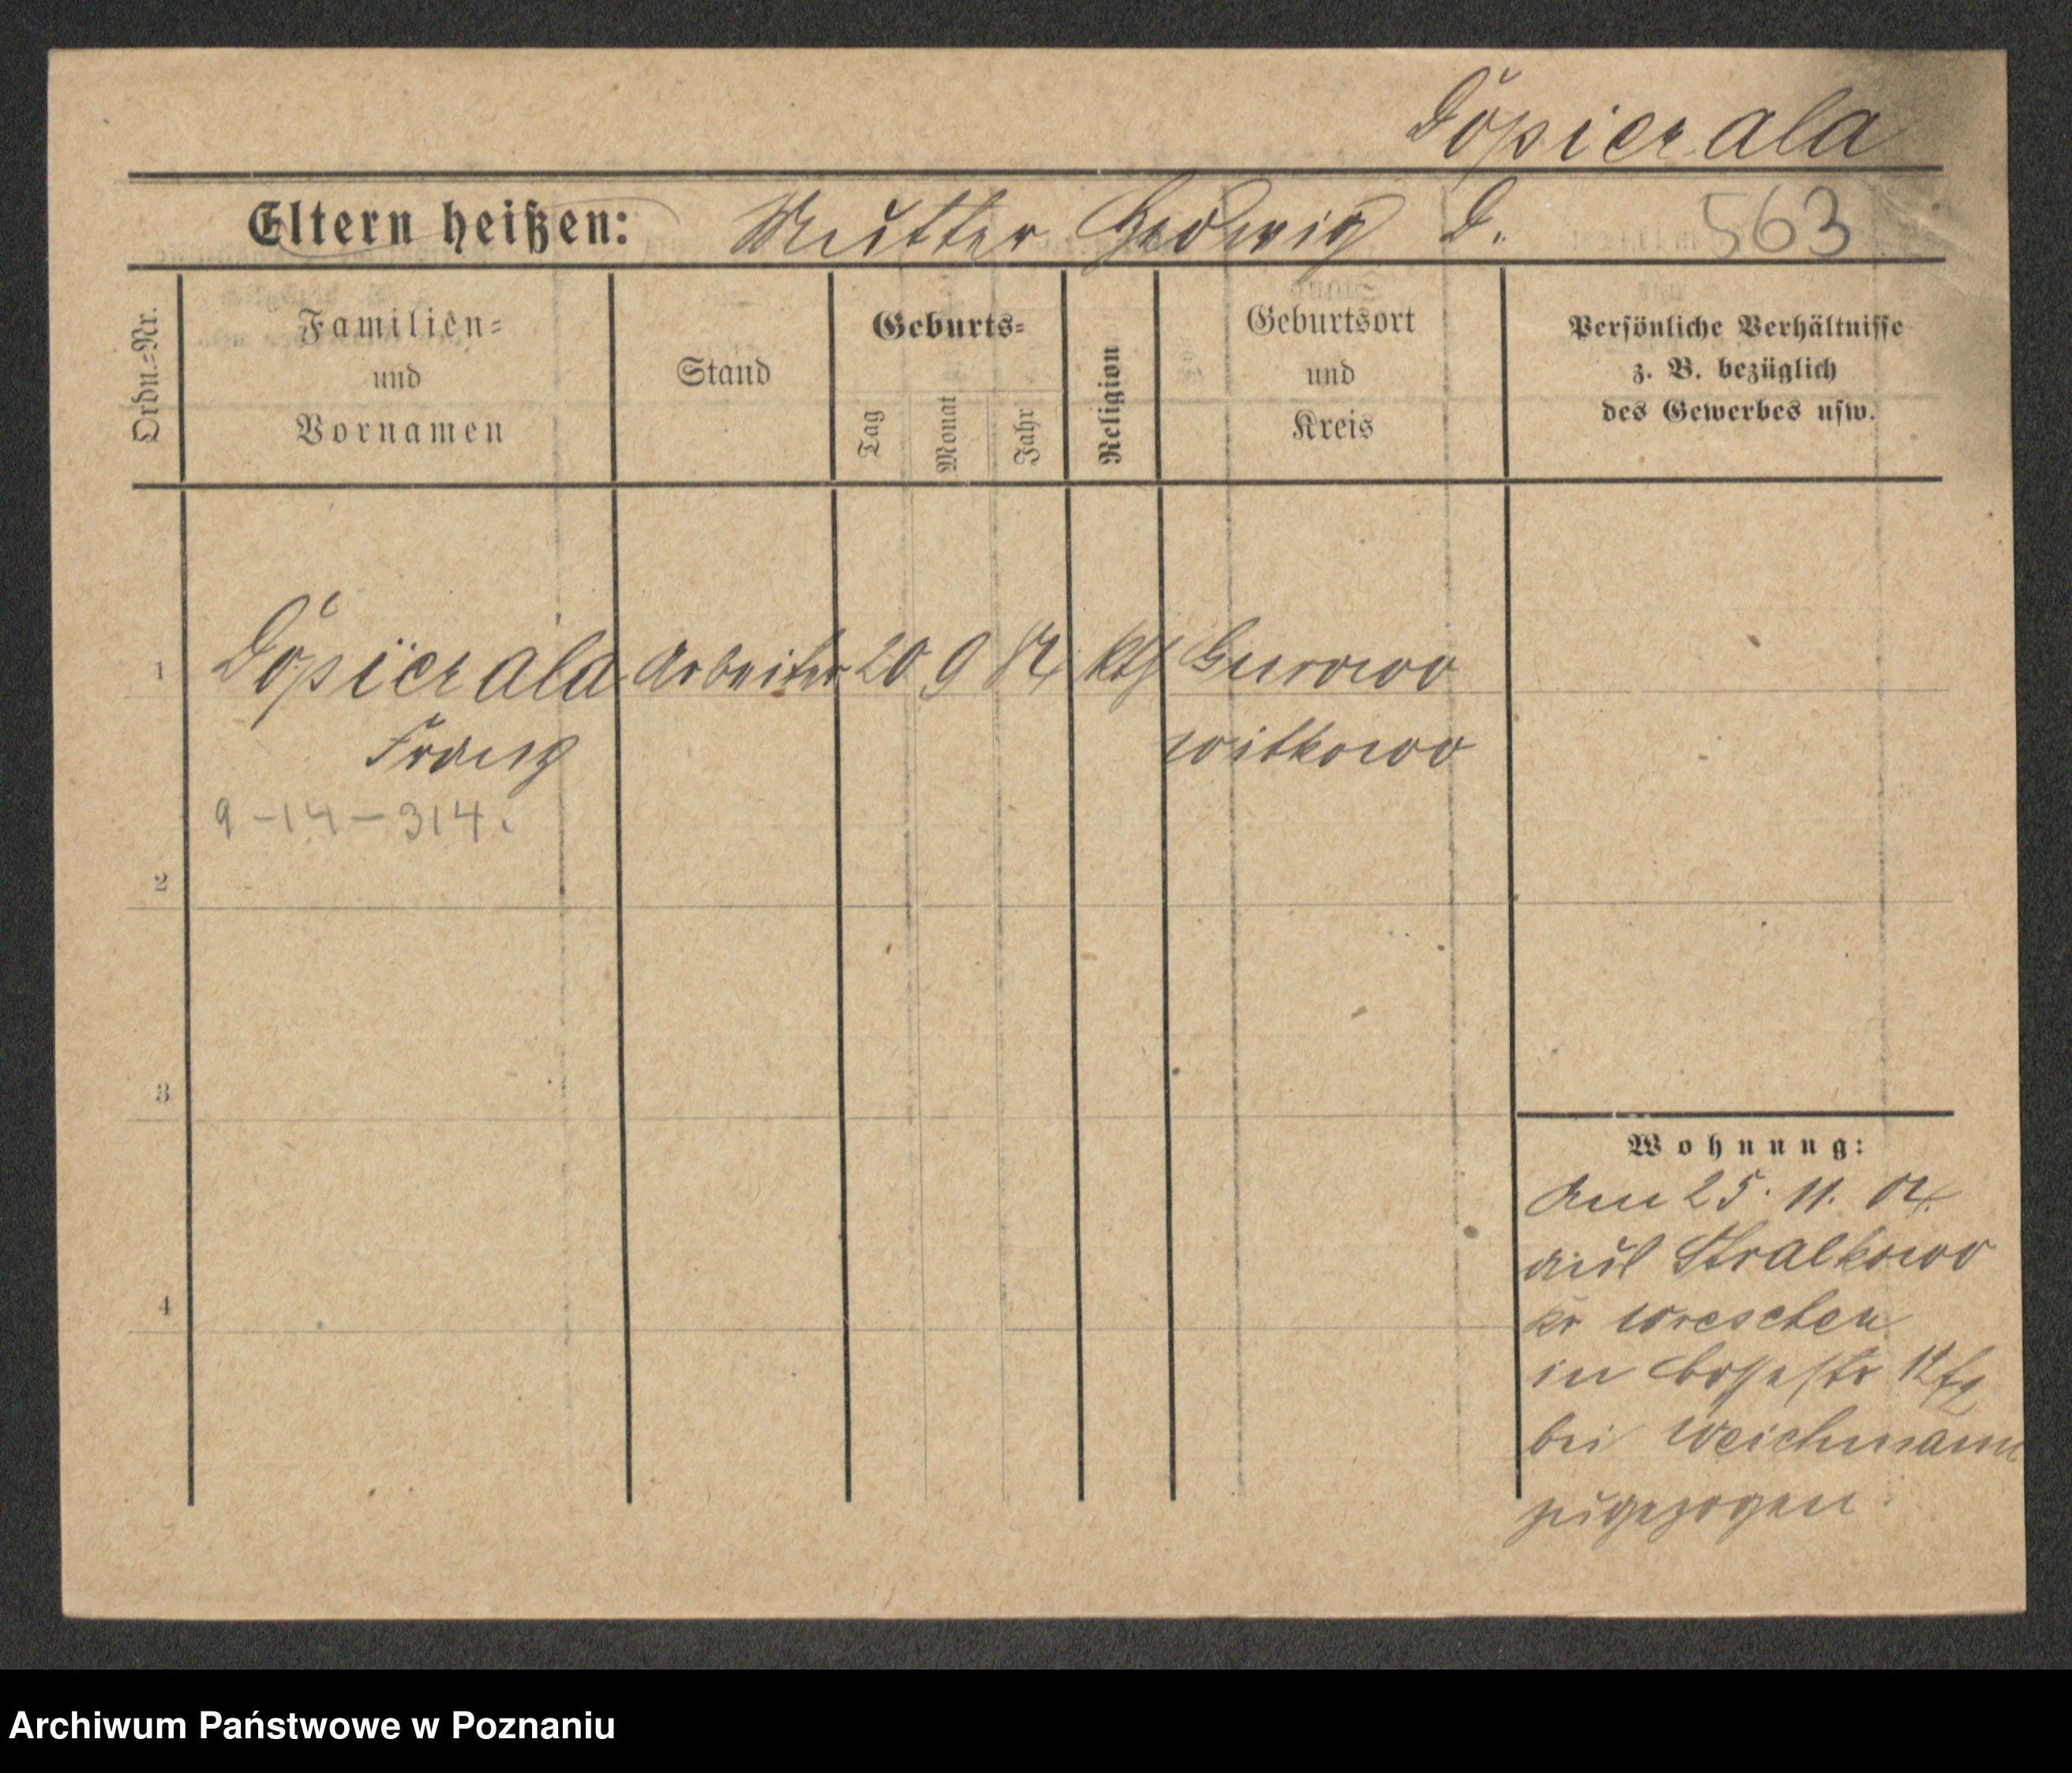 Dopierala
Eltern heißen: Mutter Hedwig D. 563
Ordn.=Nr.
Familien=
und
Vornamen
Stand
Geburts=
Tag
Monat
Jahr
Religion
Geburtsort
und
Kreis
Persönliche Verhältnisse
z. B. bezüglich
des Gewerbes usw.
1 Dopierala Arbeiter 20 9 84 kth Gurowo
Franz Witkowo
9-14-314.
2
3
4
Wohnung:
Am 25. 11. 04.
aus Stralkowo
Kr Wreschen
in
bei Weichmann
zugezogen.
Archiwum Państwowe w Poznaniu